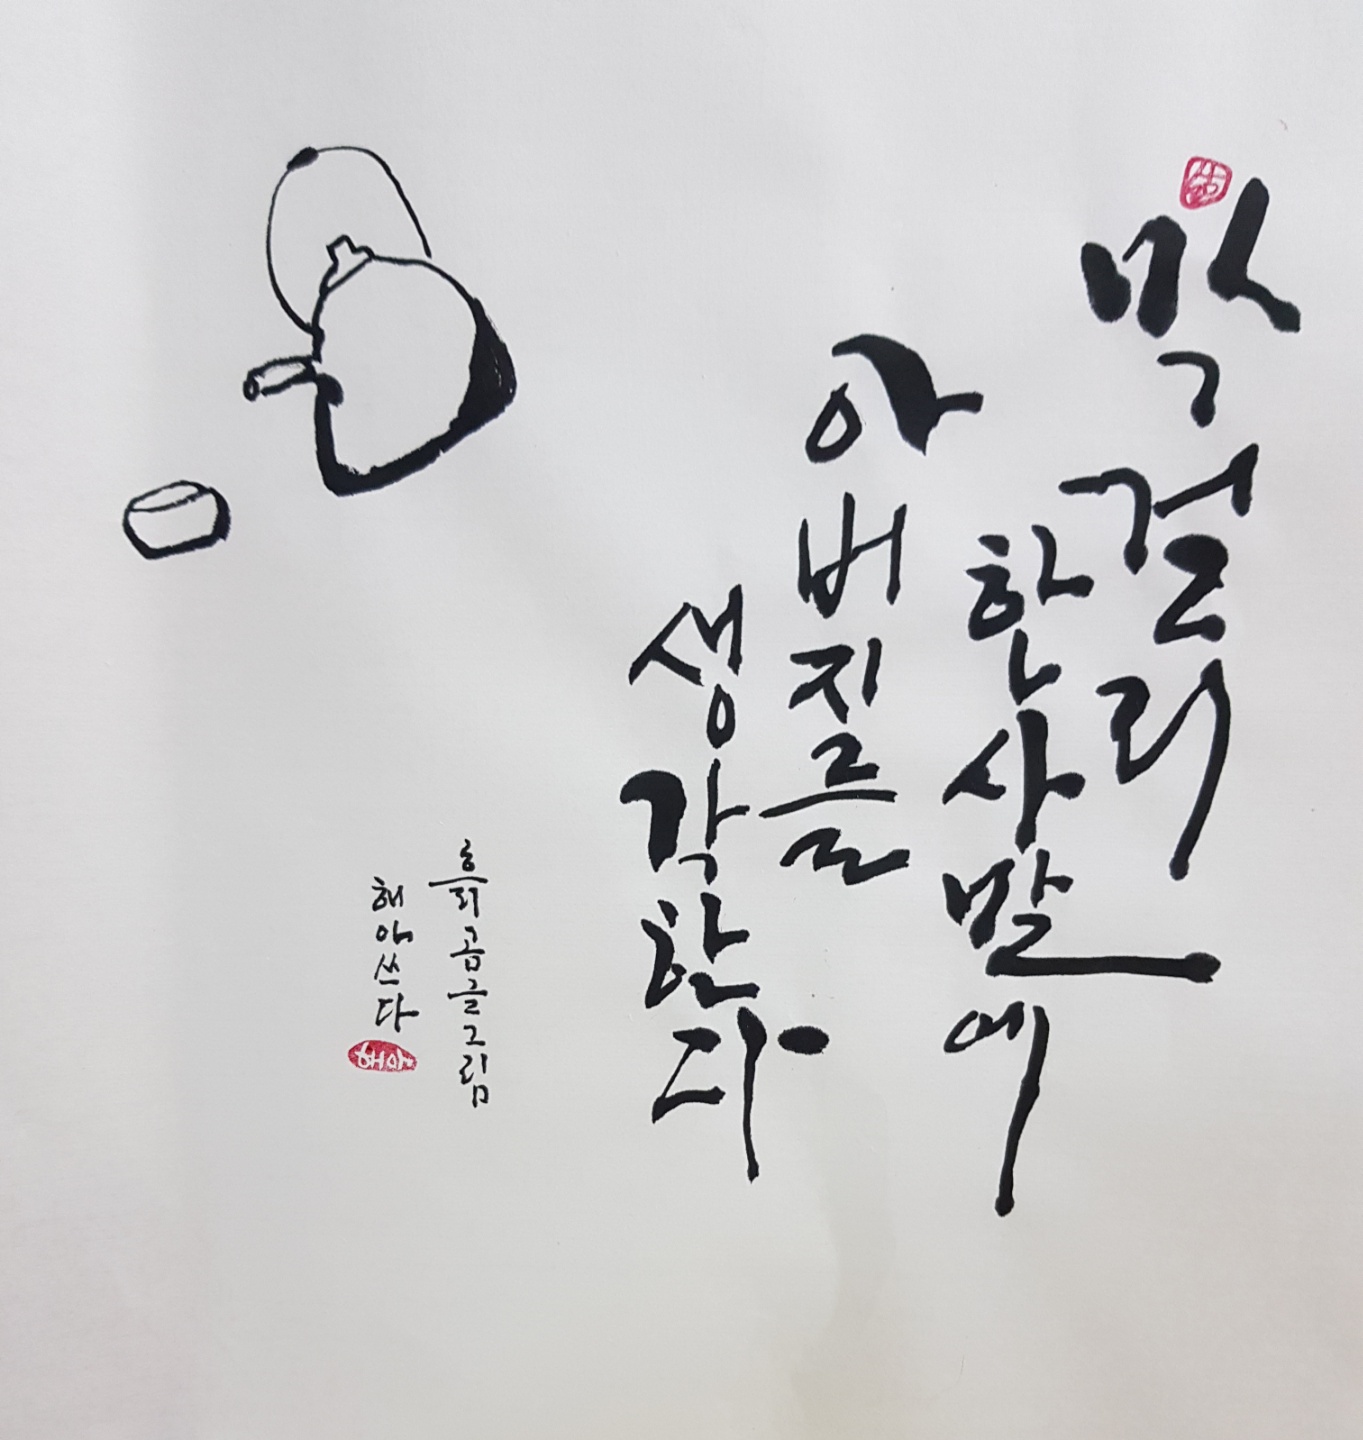 막걸리
한사발에
아버지를
생각한다
흐리곰글그림
해야쓰다
해야